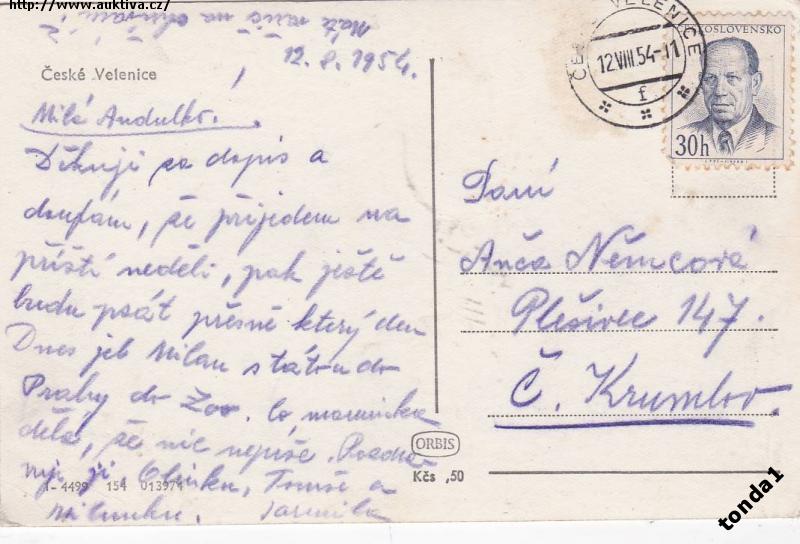 http://www.auktiva.cz/
12. 8. 1954.
České Velenice
Milá Andulko!
Děkuji za dopis a
doufám, že přijedem na
příští neděli, pak ještě
budu psát přesně který den
Dnes jel Milan s tátou do
Prahy do Zoo. Co maminka
dělá, že nic nepíše. Pozdra-
vuj ji, Oldřiku, Tomše a
Jarmila
1-4499 154 013974
ORBIS
Kčs ,50
ČESKÉ VELENICE
12.VIII.54-11
f
ČESKOSLOVENSKO
30h
Paní
Anča Němcová
Plešivec 147.
Č. Krumlov.
tonda1